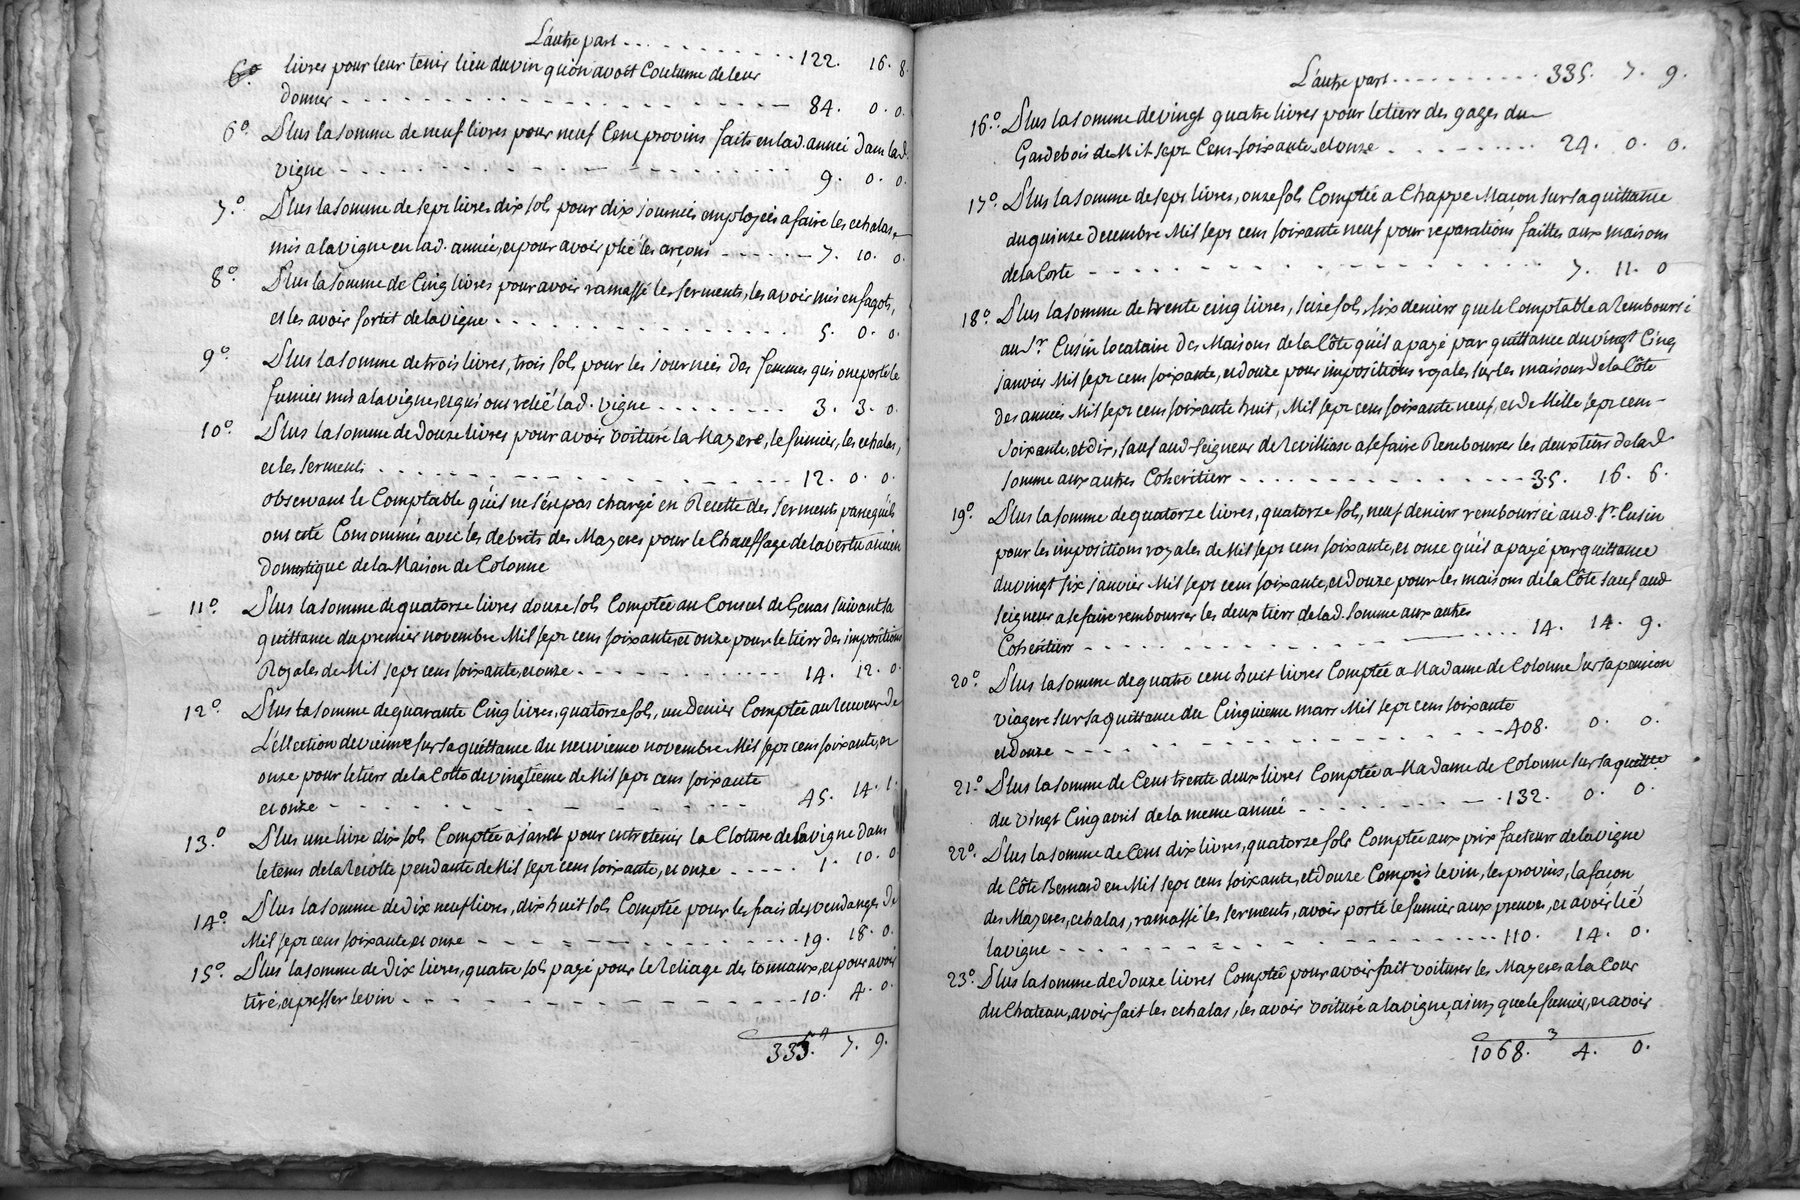 L'autre part . . . . . . . . . . . 122. 16. 8.
6.° livres pour leur tenir lieu du vin qu'on avoit Coutume de leur
donner - - - - - - - - - - 84. 0. 0.
6.° Plus la somme de neuf livres pour neuf Cent provins faits en lad. année dans lad.
vigne - - - - - - - - - - 9. 0. 0.
7.° Plus la somme de sept livres dix sols pour dix journées employées a faire les echalas
mis a la vigne en lad. année, et pour avoir plié les arçons - - - - - - 7. 10. 0.
8.° Plus la somme de Cinq livres pour avoir ramassé les serments, les avoir mis en fagots,
et les avoir sortit de la vigne - - - - - - - - - - 5. 0. 0.
9.° Plus la somme de trois livres, trois sols pour les journées des femmes qui ont porté le
fumier mis a la vigne, et qui ont relié lad. vigne - - - - - - - - 3. 3. 0.
10.° Plus la somme de douze livres pour avoir voituré la Mazere, le fumier, les echalas,
et les serments - - - - - - - - - - 12. 0. 0.
observant le Comptable qu'il ne s'est pas chargé en Recette des serments parce qu'ils
ont eté Consommés avec les debrits des Mazeres pour le Chauffage de la vertu ancien
domestique de la Maison de Colonne
11.° Plus la somme de quatorze livres douze sols Comptée au Consul de Genas suivant sa
quittance du premier novembre Mil sept cens soixante, et onze pour le tiers des impositions
Royales de Mil sept cens soixante, et onze - - - - - - - - - - 14. 12. 0.
12.° Plus la somme de quarante Cinq livres, quatorze sols, un Denier Comptée au Receveur de
L'éllection de vienne sur sa quittance du neuvieme novembre Mil sept cens soixante, et
onze pour le tiers de la Cotte de vingtieme de Mil sept cens soixante
et onze - - - - - - - - - - 45. 14. 1.
13.° Plus une livre dix sols Comptée a Janet pour entretenir la Cloture de la vigne dans
le tems de la Récolte pendante de Mil sept cens soixante, et onze - - - - - 1. 10. 0
14.° Plus la somme de dix neuf livres, dix huit sols Comptée pour les frais des vendanges de
Mil sept cens soixante, et onze - - - - - - - - - - 19. 18. 0.
15.° Plus la somme de dix livres, quatre sols payé pour le Reliage des tonnaux, et pour avoir
tiré, et presser le vin - - - - - - - - - - 10. 4. 0.
335. 7. 9.
L'autre part . . . . . . . . . . 335. 7. 9.
16.° Plus la somme de vingt quatre livres pour le tiers des gages du
Gardebois de Mil sept Cens soixante, et onze - - - - - - - - 24. 0. 0.
17.° Plus la somme de sept livres, onze sols Comptée a Chappe Macon sur sa quittance
du quinze decembre Mil sept cens soixante neuf pour reparations faittes aux maisons
de la Cotte - - - - - - - - - - 7. 11. 0
18.° Plus la somme de trente cinq livres, seize sols, six deniers que le Comptable a Remboursé
au Sr. Cusin locataire des Maisons de la Côte qu'il a payé par quittance du vingt Cinq
janvier Mil sept cens soixante, et douze pour impositions royales sur les maisons de la Côte
des années Mil sept cens soixante huit, Mil sept cens soixante neuf, et de Mille sept cens
soixante, et dix, sauf aud. seigneur de Revilliasc a se faire Rembourser les deux tiers de lad.
somme aux autres Cohéritiers - - - - - - - - - - 35. 16. 6.
19.° Plus la somme de quatorze livres, quatorze sols, neuf deniers remboursée aud. Sr. Cusin
pour les impositions royales de Mil sept cens soixante, et onze qu'il a payé par quittance
du vingt six janvier Mil sept cens soixante, et douze pour les maisons de la Côte sauf aud
seigneur a se faire rembourser les deux tiers de lad. somme aux autres
Cohéritiers - - - - - - - - - - 14. 14. 9.
20.° Plus la somme de quatre cent huit livres Comptée a Madame de Colonne sur sa pension
viagere sur sa quittance du Cinquieme mars Mil sept cens soixante
et douze - - - - - - - - - - 408. 0. 0.
21.° Plus la somme de Cent trente deux livres Comptée a Madame de Colonne sur sa quittce
du vingt Cinq avril de la meme année - - - - - - - 132. 0. 0.
22.° Plus la somme de Cent dix livres, quatorze sols Comptée aux prix facteurs de la vigne
de Côte Bernard en Mil sept cens soixante, et douze Compris le vin, les provins, la façon
des Mazeres, echalas, ramassé les serments, avoir porté le fumier aux preuves, et avoir lié
la vigne - - - - - - - - - - 110. 14. 0.
23.° Plus la somme de douze livres Comptée pour avoir fait voiturer les Mazeres a la Cour
du Chateau, avoir fait les echalas, les avoir voituré a la vigne, ainsy que le fumier, et avoir
1068. 3 4. 0.